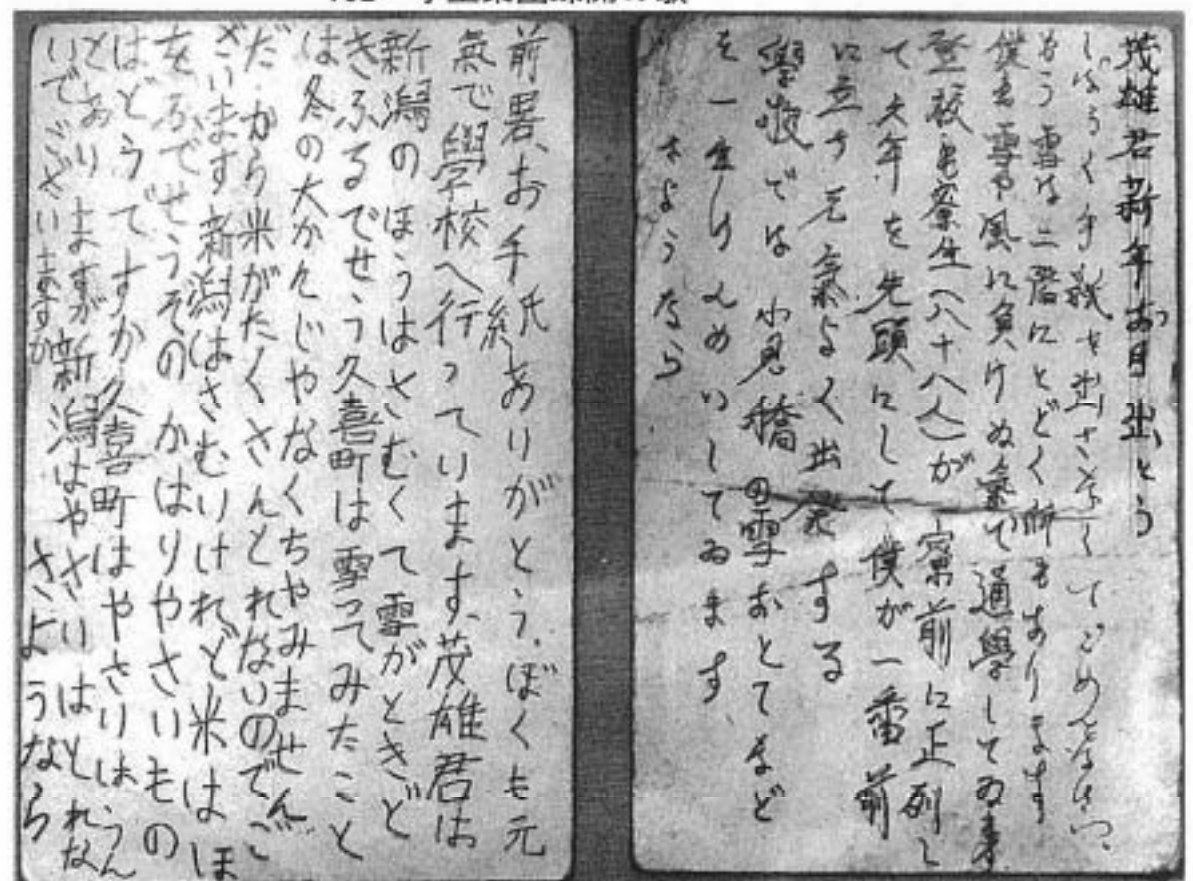 茂雄君新年お目出とう
しばらく手紙を出さなくてごめんなさい、
もう雪は二階にとどく所もあります
僕も雪や風に負けぬ氣で通學してゐます
登校も寮生(八十八人)が寮前に正列し
て六年を先頭にして僕が一番前
に立ち元氣よく出発する
學校では 小見橋の雪おとしなど
を一生けんめいしてゐます、
さようなら
前畧、お手紙ありがとう、ぼくも元
氣で學校へ行っています、茂雄君は
新潟のほうはさむくて雪がときど
きふるでせう久喜町は雪ってみたこと
は冬の大かんじやなくちやみません
だから米がたくさんとれないのでご
ざいます新潟はさむいけれど米はほ
をふでせうそのかはりやさいもの
はどうですか久喜町はやさいはうん
とありますが新潟はやさいはとれな
いでございますか
さよ うなら